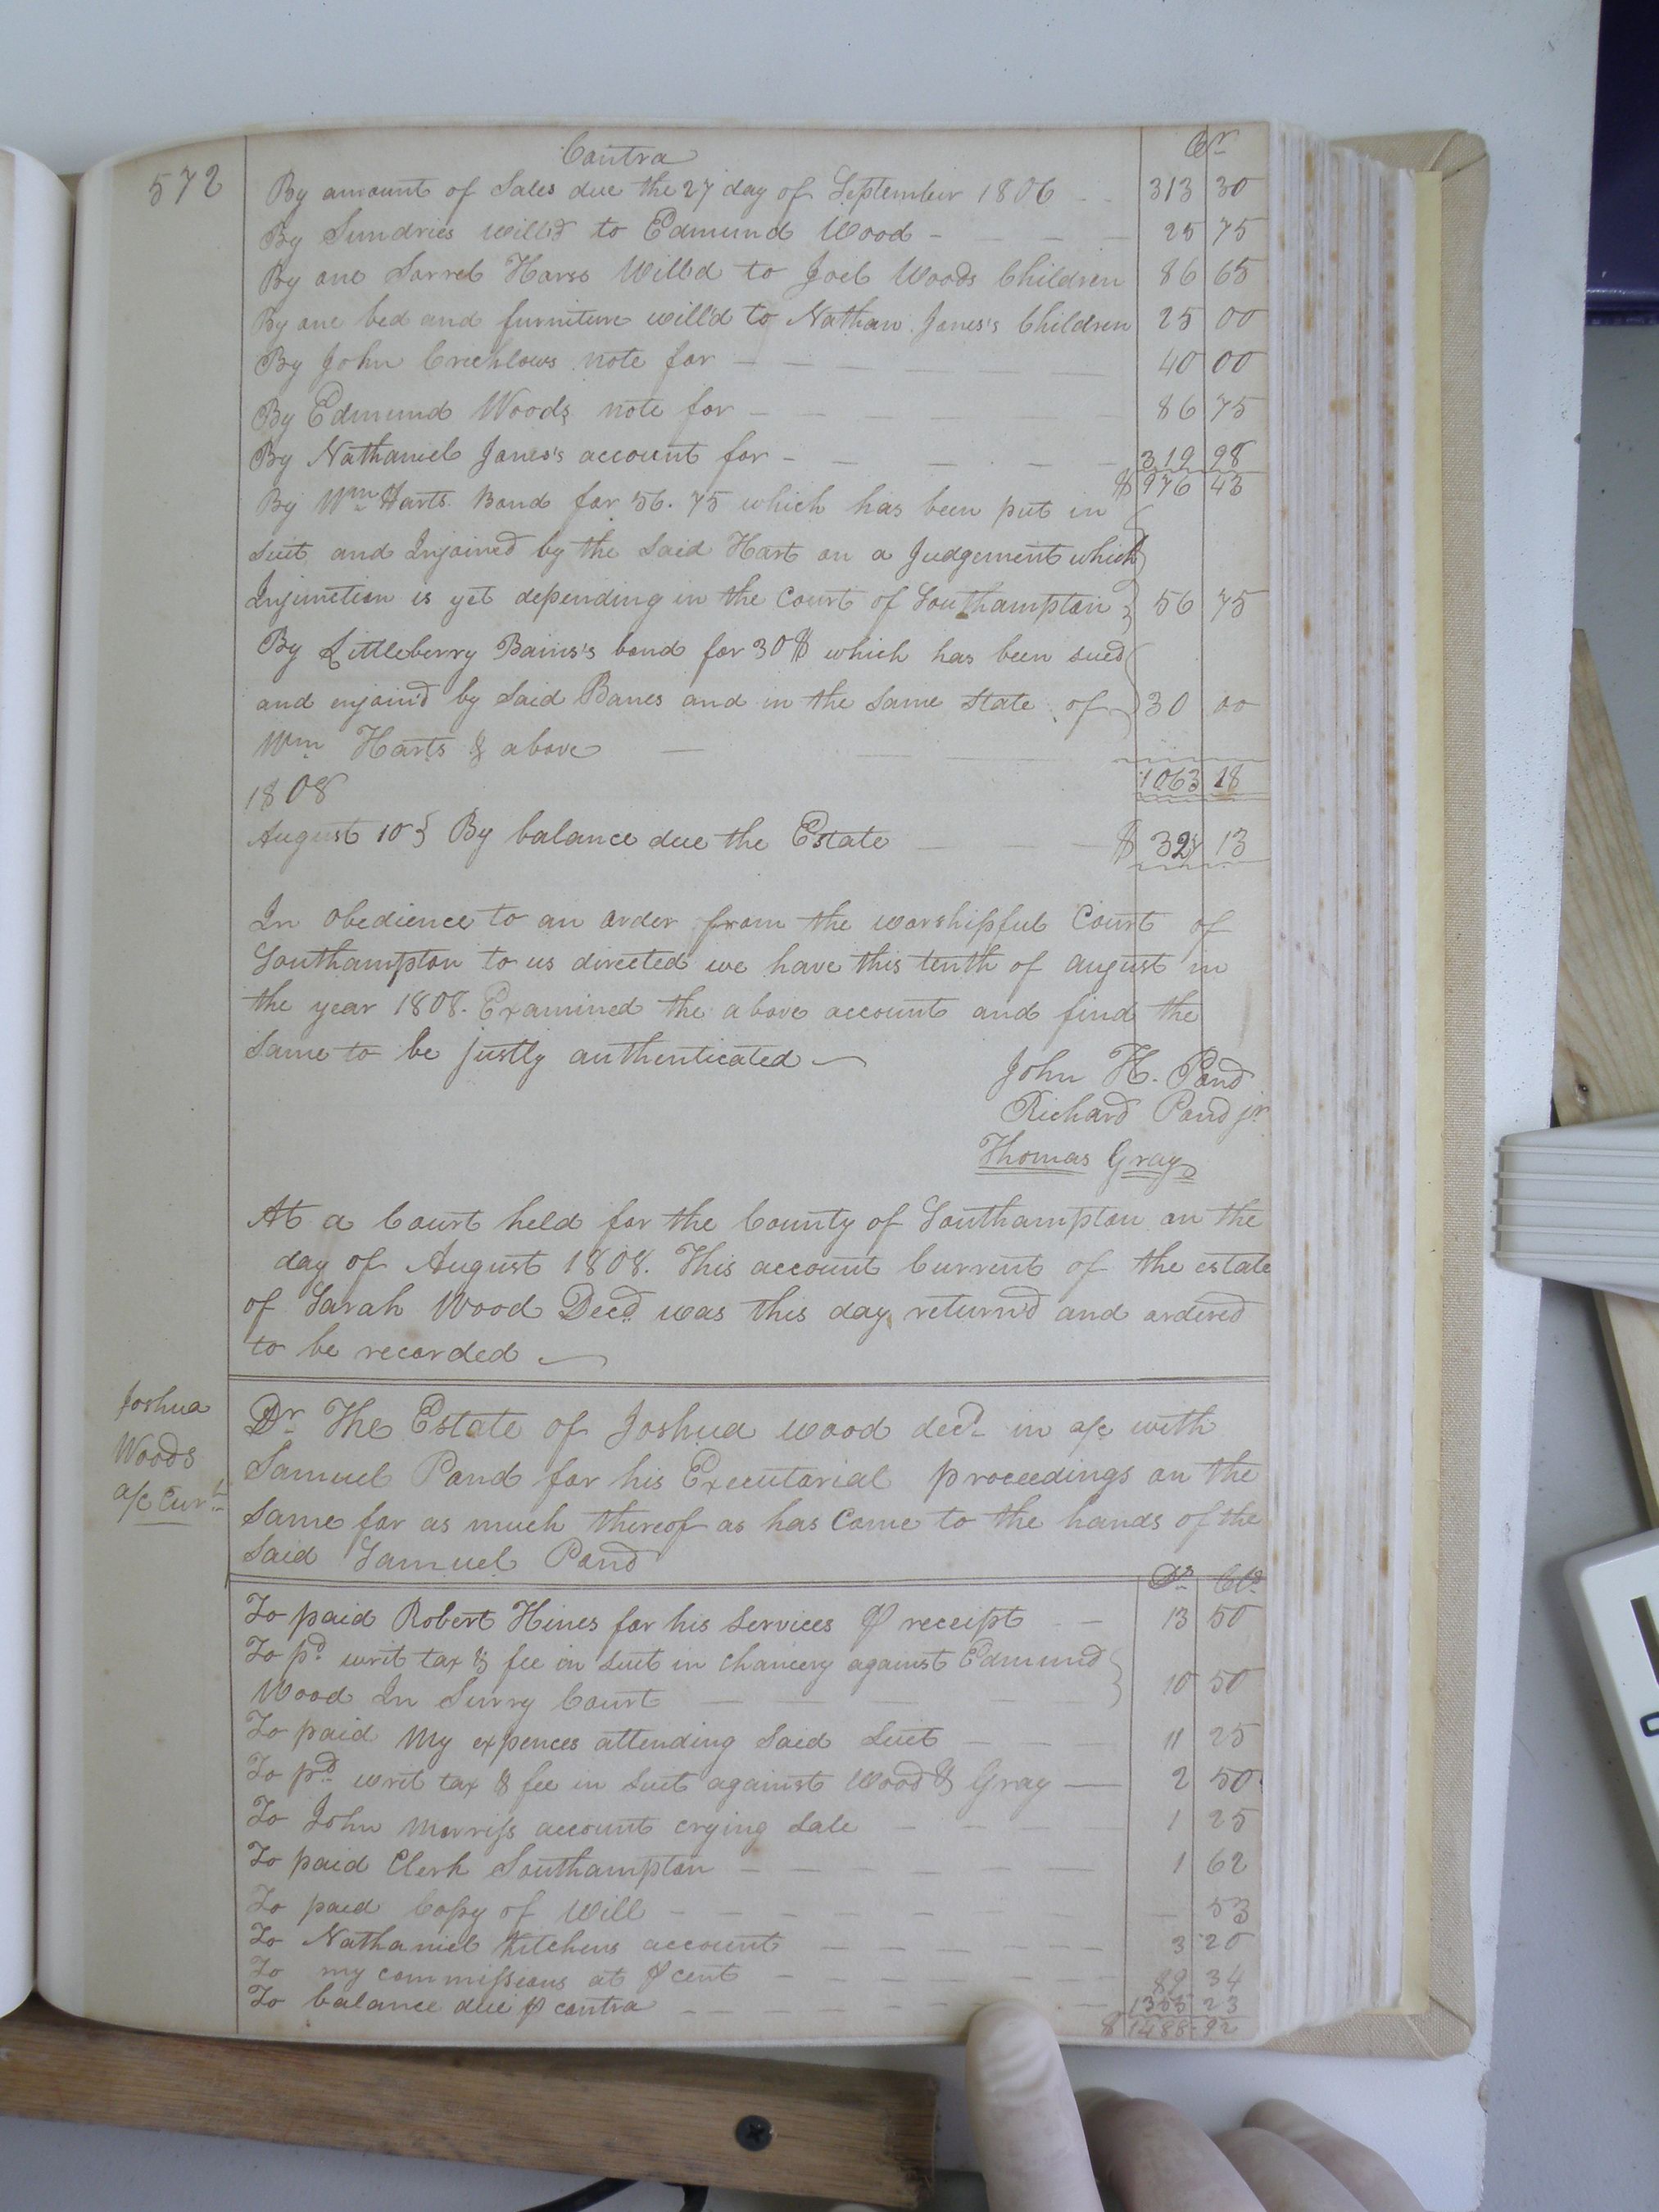 572
Contra Cr
By amount of Sales due the 27 day of September 1806 313 30
By Sundries will'd to Edmund Wood 25 75
By one Sorrel Horse Will'd to Joel Woods Children 86 65
By one bed and furniture will'd to Nathan Jones's Children 25 00
By John Crechlows note for 40 00
By Edmund Woods note for 86 75
By Nathaniel Jones's account for 319 98
$ 976 43
By Wm Harts Bond for 56.75 which has been put in
suit and Injoined by the said Hart on a Judgement which
Injunction is yet depending in the Court of Southampton 56 75
By Littleberry Bains's bond for 30$ which has been sued
and enjoin'd by said Banes and in the same state of 30 00
Wm Harts & above
1063 18
1808
August 10 } By balance due the Estate $ 13
In obedience to an order from the worshipful Court of
Southampton to us directed we have this tenth of august in
the year 1808. Examined the above account and find the
same to be justly authenticated
John H. Pond
Richard Pond jr
Thomas Gray
At a Court held for the County of Southampton on the
day of August 1808. This account Current of the estate
of Sarah Wood Decd was this day return'd and ordered
to be recorded
Joshua
Woods
a/c Curt
Dr The Estate of Joshua wood decd in a/c with
Samuel Pond for his Executorial proceedings on the
same for as much thereof as has Come to the hands of the
said Samuel Pond
Ds Cts
To paid Robert Hines for his services ⅌ receipt 13 50
To pd writ tax & fee in suit in chancery against Edmund
Wood In Surry Court 10 50
To paid My expences attending said suit 11 25
To pd writ tax & fee in suit against Wood & Gray 2 50
To John Morriss account crying sale 1 25
To paid Clerk Southampton 1 62
To paid Copy of Will 53
To Nathaniel Kitchens account 3 20
To my commissions at ⅌ cent 89 34
To balance due ⅌ contra 1355 23
$ 1488 92